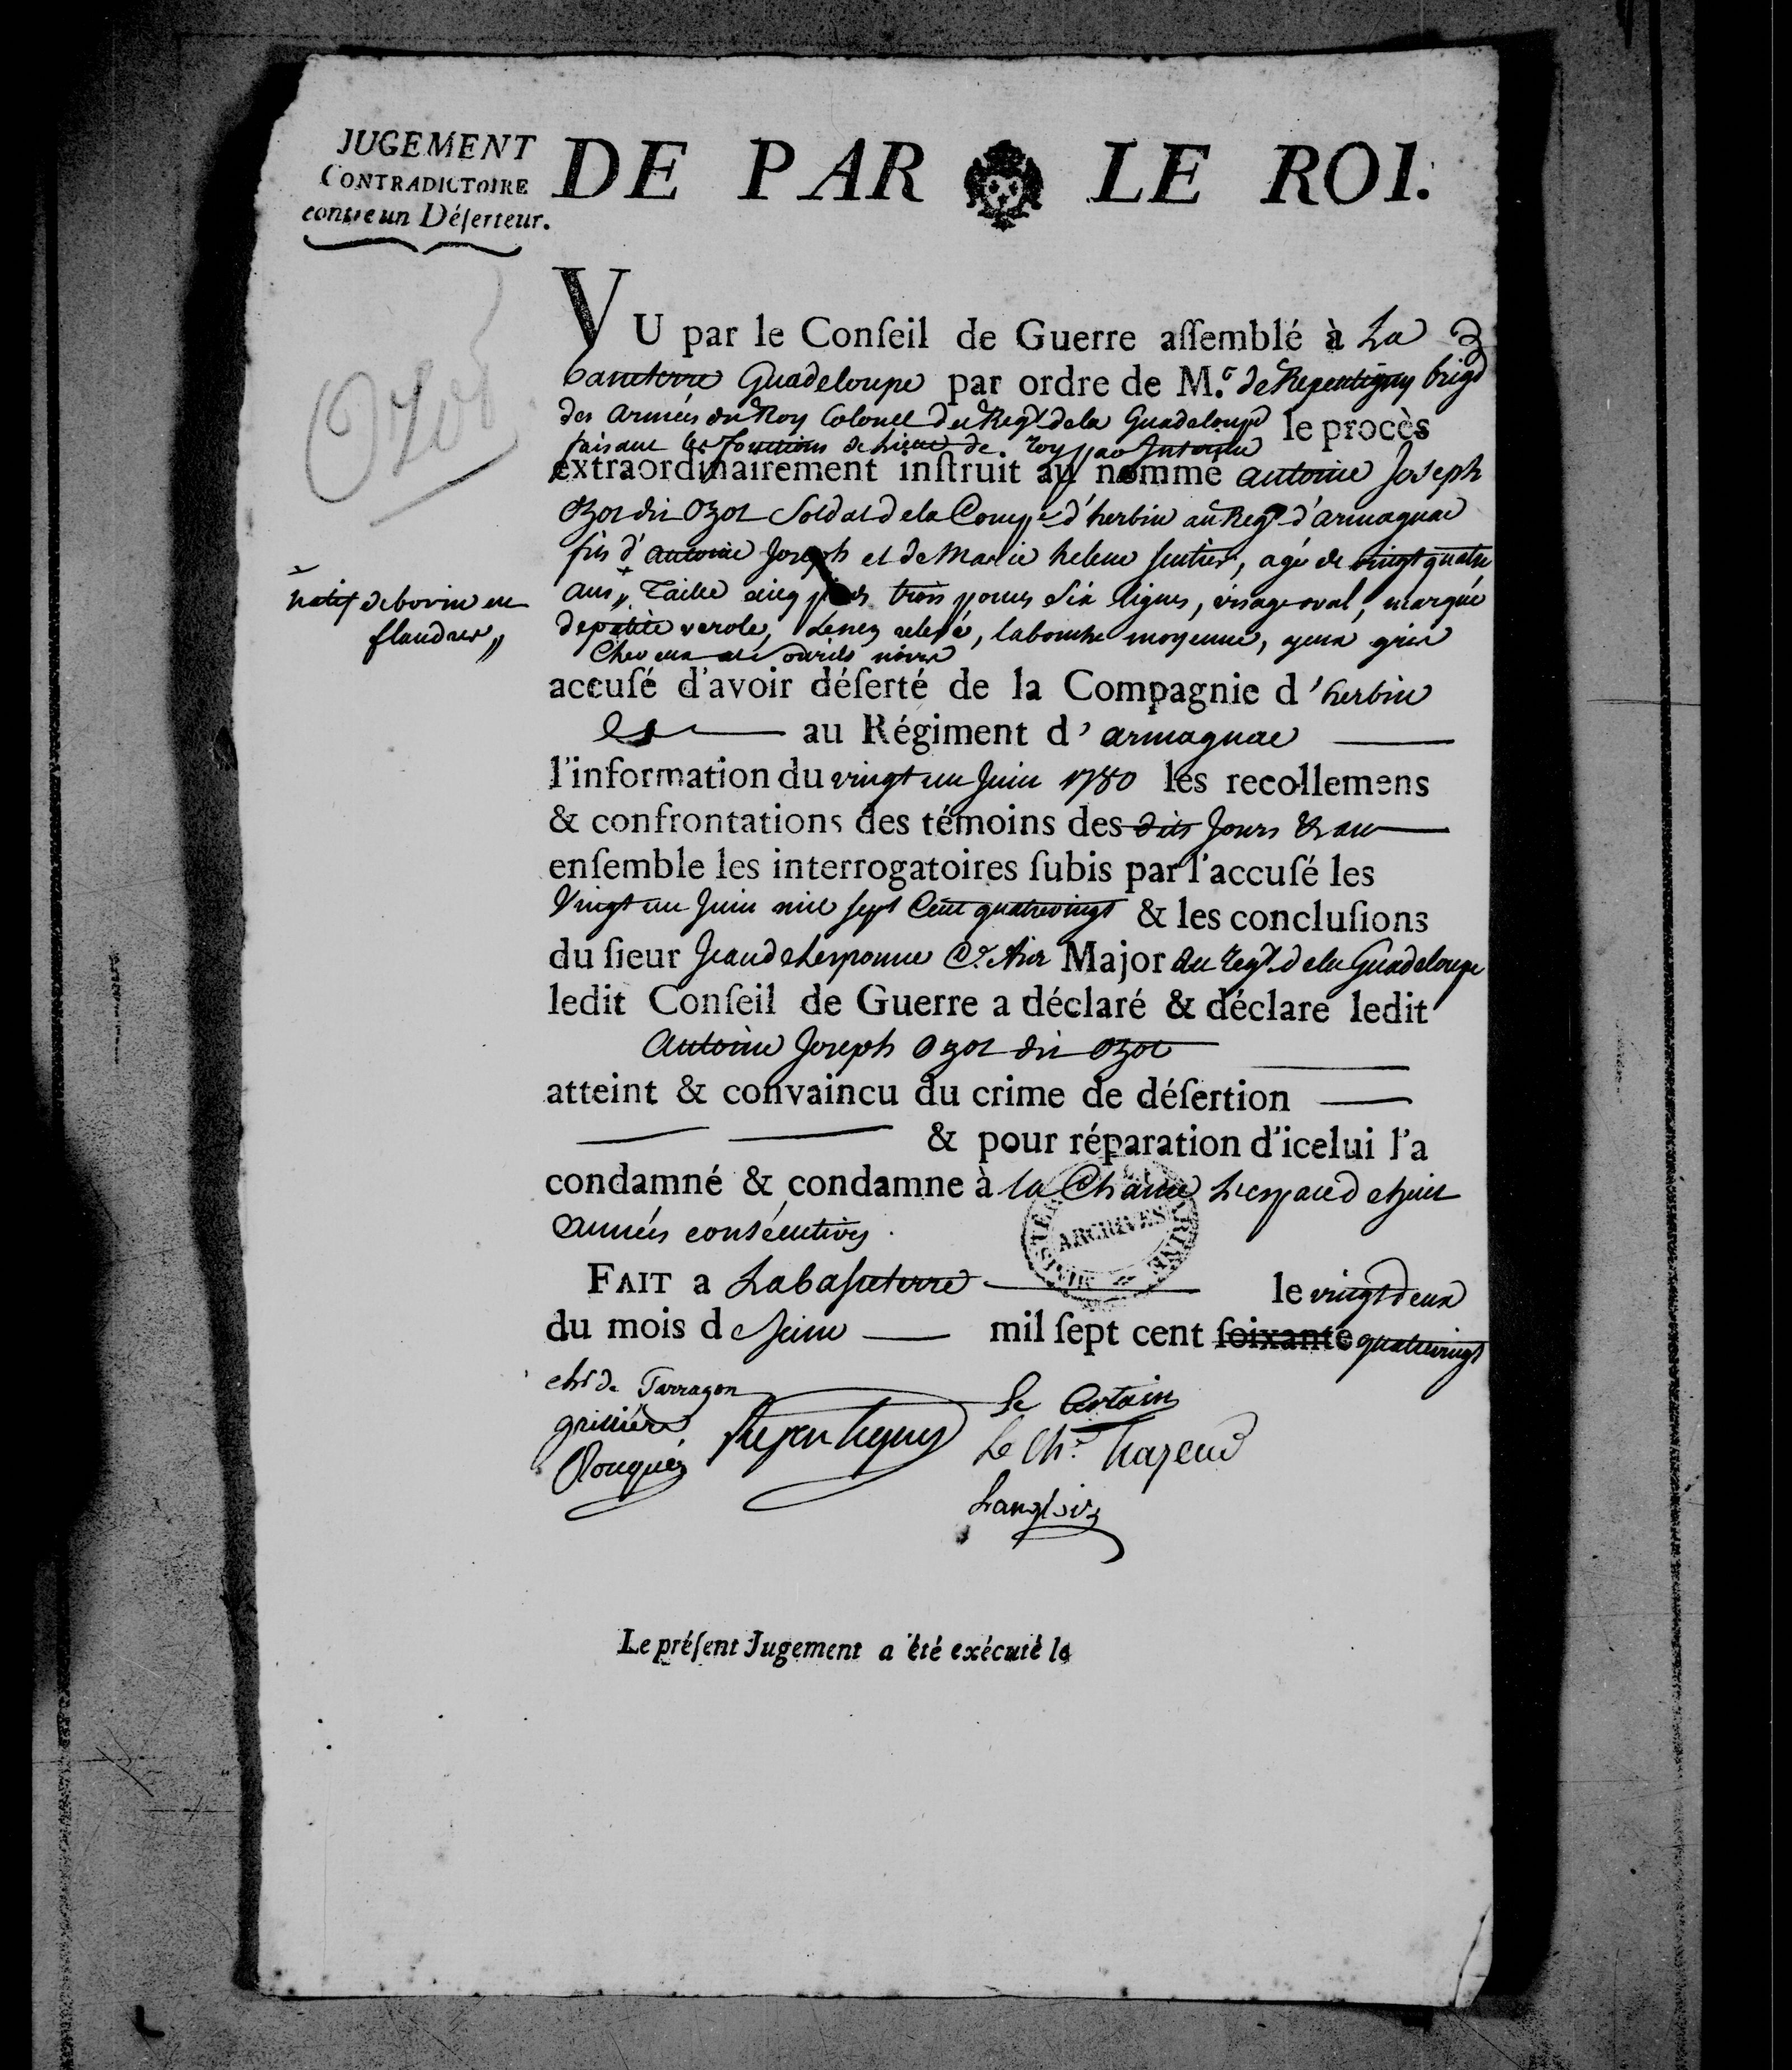 JUGEMENT
CONTRADICTOIRE
contre un Déſerteur.
DE PAR LE ROI.
Ozot
VU par le Conſeil de Guerre aſſemblé à La
basseterre Guadeloupe par ordre de M.r de Repentigny brigd
des armées du Roy Colonel du Regt de la Guadeloupe le procès
faisant les fonctions de Lieut de roy par Interim
extraordinairement inſtruit au nommé antoine Joseph
Ozot dit Ozot Soldat de la Compe d'herbin au Regt d'armagnac
fils d'antoine Joseph et de Marie helene, agé de vingt quatre
ans, Taille cinq pieds trois pouces six lignes, visage oval, marqué
de petite verole, le nez relevé, la bouche moyenne, yeux gris
Cheveux et sourcils noirs
natif de en
flandres
accuſé d'avoir déſerté de la Compagnie d'herbin
au Régiment d'armagnac
l'information du vingt un Juin 1780 les recollemens
& confrontations des témoins des dits Jours & an
enſemble les interrogatoires ſubis par l'accuſé les
Vingt un Juin mil sept Cent quatrevingt & les concluſions
du ſieur Jean de Lesponne Major du regt de la Guadeloupe
ledit Conſeil de Guerre a déclaré & déclare ledit
Antoine Joseph Ozot dit Ozot
atteint & convaincu du crime de déſertion
& pour réparation d'icelui l'a
condamné & condamne à la Chaine L'espace de huit
années consécutives.
MINISTERE MARINE ARCHIVES
FAIT a La basseterre le vingt deux
du mois de Juin mil ſept cent ſoixante quatrevingt
chr de Tarragon
Le Certain
Repentigny
Le Chr
Rouquès
Langlois
Le préſent Jugement a été exécuté le